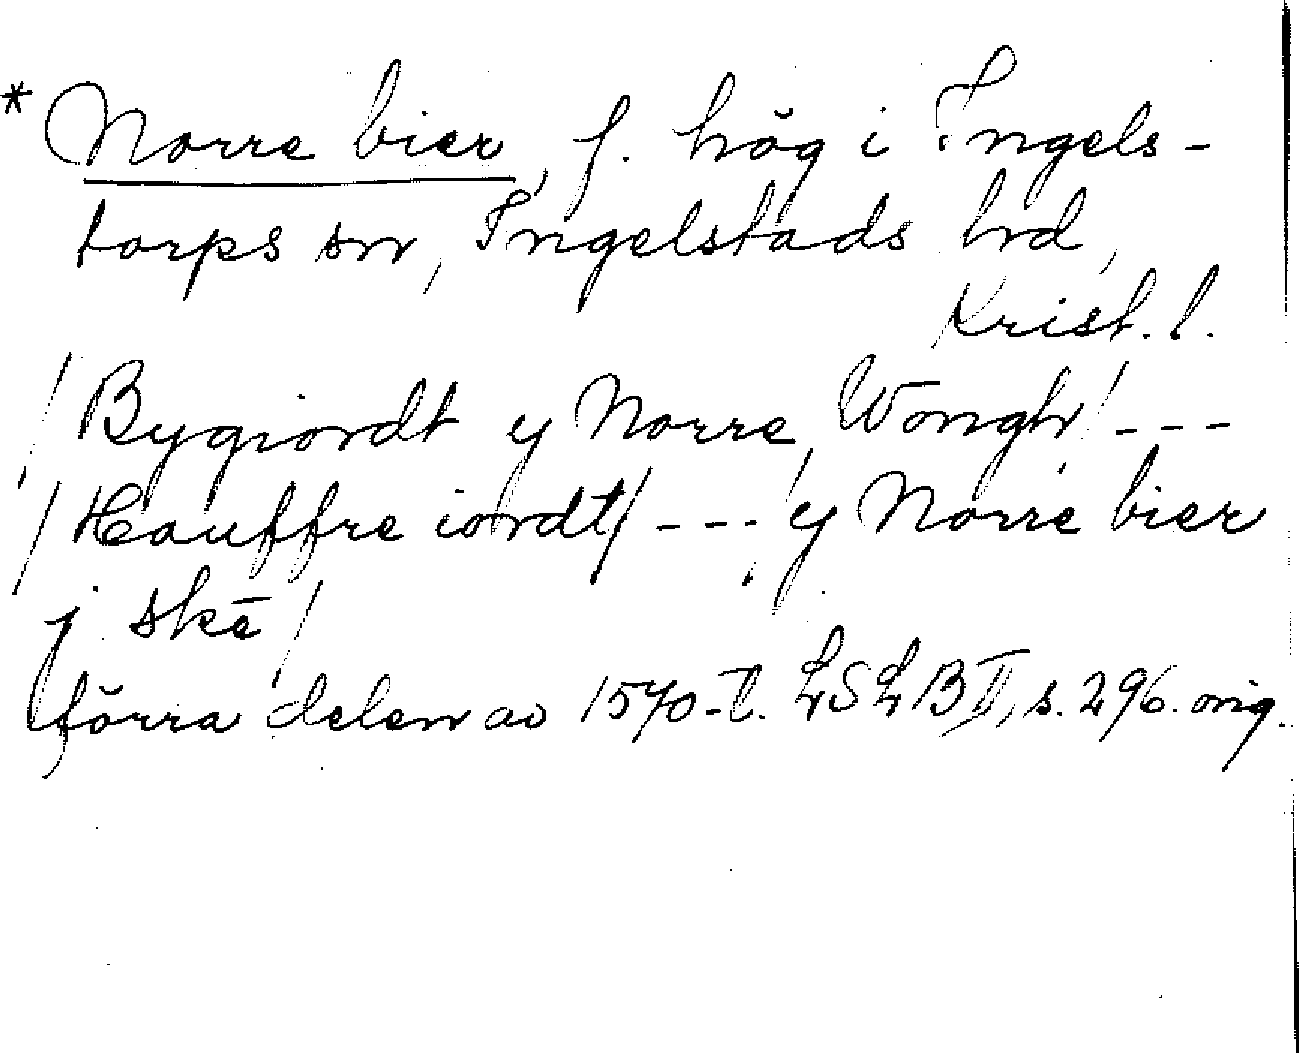 * Norre bier, f. hög i Ingels-
torps sn, Ingelstads hd,
Krist. l.
/Bygiordt y Norre Wongh/ ---
/Houffre iordt/ --- y Norre bier
j skē/
förra delen av 1570-t. LSLB II, s. 296. orig.